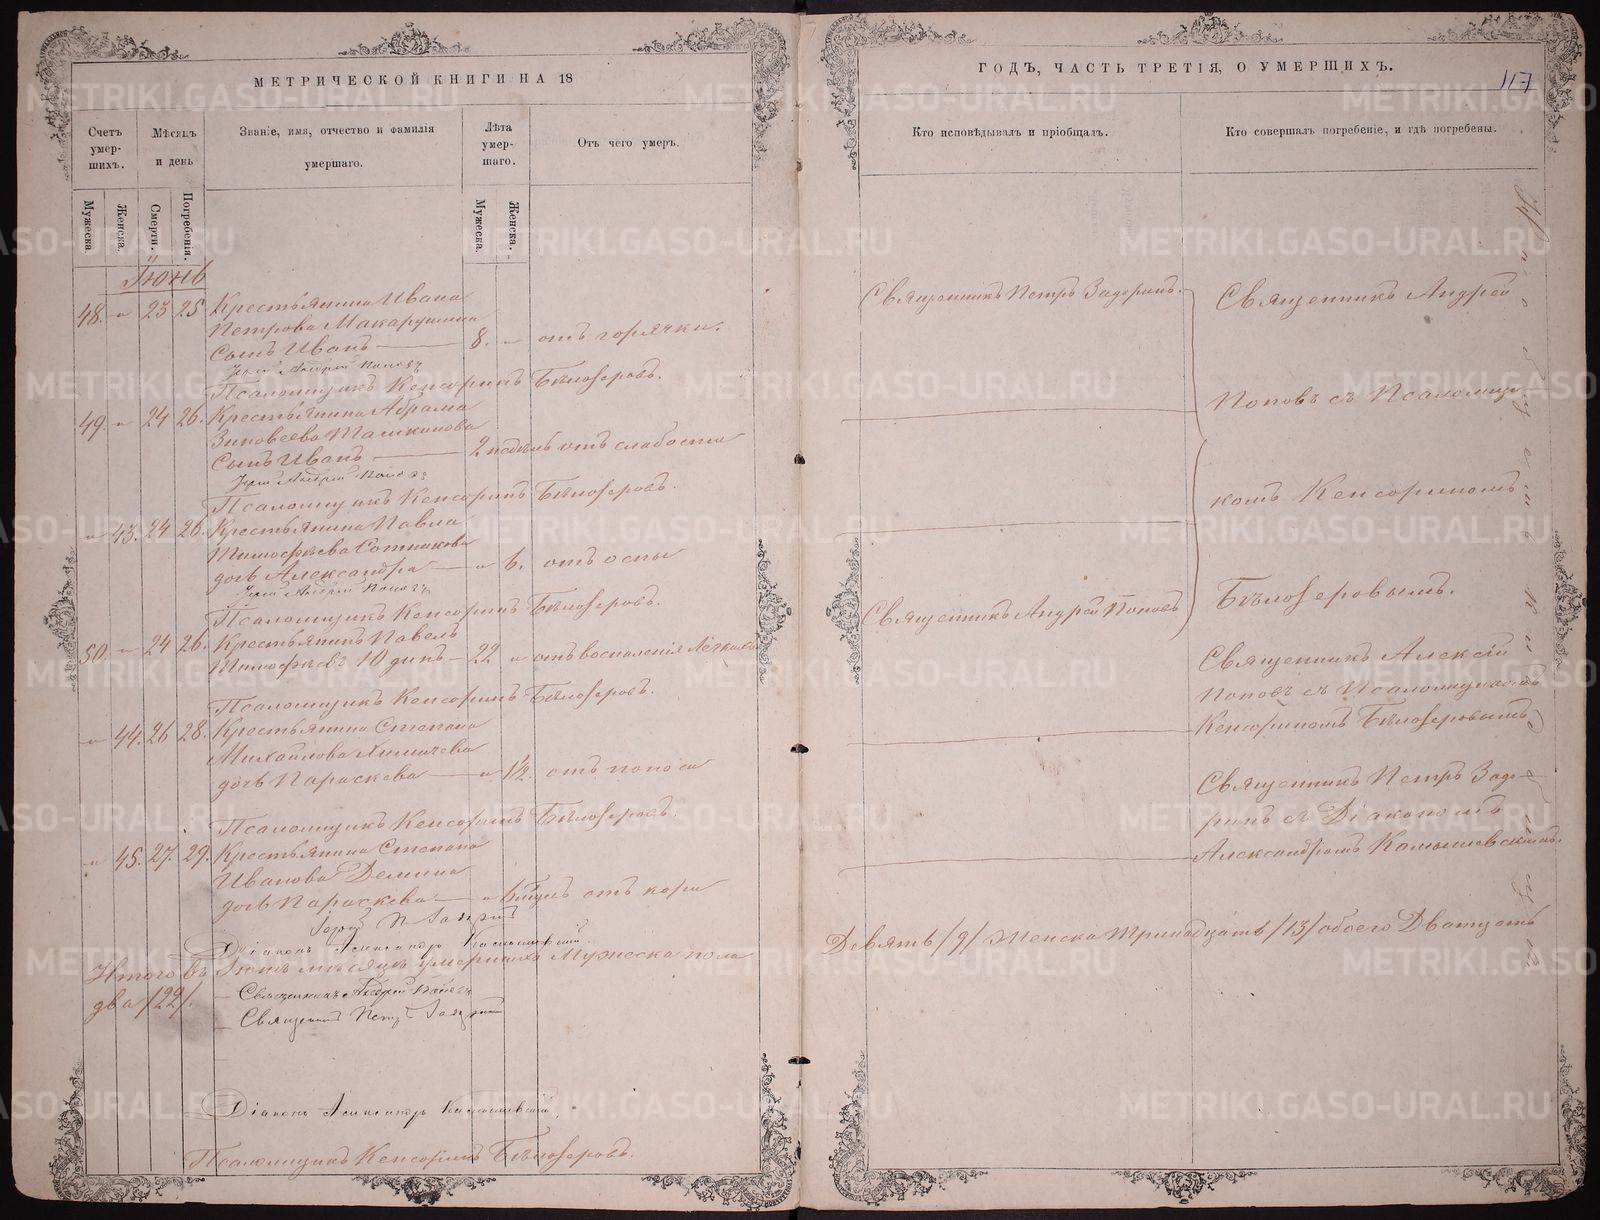 МЕТРИЧЕСКОЙ КНИГИ НА 18
Счетъ умер-шихъ.
Мѣсяцъ и день
Званіе, имя, отчество и фамилія умершаго.
Лѣта умер-шаго.
Отъ чего умеръ.
Мужеска.
Женска.
Смерти.
Погребенія.
Мужеска.
Женска.
Іюнь
48. " 23 25 Крестьянина Ивана
Петрова Макарушина
сынъ Иванъ — 8. " отъ горячки.
Іерей Андрей Поповъ
Псаломщикъ Кенсоринъ Бѣлозеровъ.
49. " 24 26. Крестьянина Абрама
Зиновеева
сынъ Иванъ — 2 недѣль отъ слабости
Іерей Андрей Поповъ
Псаломщикъ Кенсоринъ Бѣлозеровъ.
" 43. 24 26. Крестьянина Павла
Тимофѣева Сотникова
дочь Александра — " 6. отъ оспы
Іерей Андрей Поповъ
Псаломщикъ Кенсоринъ Бѣлозеровъ.
50. " 24 26. Крестьянинъ Павелъ
Тимофѣевъ — 22 " отъ воспаленія легкихъ
Псаломщикъ Кенсоринъ Бѣлозеровъ.
" 44. 26 28. Крестьянина Степана
Михайлова
дочь Параскева — " 1/2. отъ поноса
Псаломщикъ Кенсоринъ Бѣлозеровъ.
" 45. 27. 29. Крестьянина Степана
Иванова Демина
дочь Параскева — " отъ кори
Іерей П Задоринъ
Діаконъ Александръ Камышевскій.
Итого въ Іюнѣ мѣсяцѣ умершихъ Мужеска пола
два /22/.
Священникъ Андрей Поповъ
Священникъ Петръ Задоринъ
Діаконъ Александръ Камышевскій.
Псаломщикъ Кенсоринъ Бѣлозеровъ.
ГОДЪ, ЧАСТЬ ТРЕТІЯ, О УМЕРШИХЪ.
117
Кто исповѣдывалъ и пріобщалъ.
Кто совершалъ погребеніе, и гдѣ погребены.
Священникъ Петръ Задоринъ.
Священникъ Андрей
Поповъ съ Псаломщи-
комъ Кенсориномъ
Бѣлозеровымъ.
Священникъ Андрей Поповъ
Священникъ Алексій
Поповъ съ Псаломщикомъ
Кенсориномъ Бѣлозеровымъ
Священникъ Петръ Задо-
ринъ съ Діакономъ
Александромъ Камышевскимъ.
Девять /9/ Женска тринадцать /13/ обоего Двадцать
METRIKI.GASO-URAL.RU